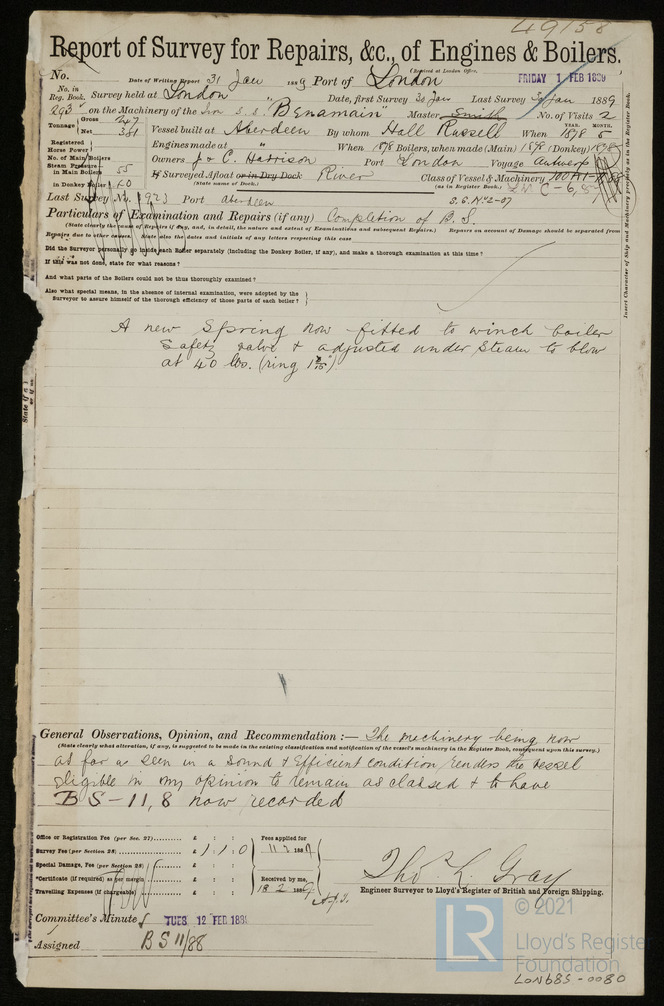 49158
Report of Survey for Repairs, &c., of Engines & Boilers.
(Received at London Office,
No. Date of Writing Report 31 Jan 1889 Port of London FRIDAY 1 FEB 1889
No. in Reg. Book. Survey held at London Date, first Survey 30 Jan Last Survey 30 Jan 1889
293 on the Machinery of the Iron s.s. "Benamain" Master Smith No. of Visits 2
Tonnage Gross Net 381 Vessel built at Aberdeen By whom Hall Russell When YEAR. 1878 MONTH. 5
Registered Horse Power Engines made at " When 1878 Boilers, when made (Main) 1878 (Donkey) 1878
No. of Main Boilers Owners J & C. Harrison Port London Voyage Antwerp
Steam Pressure in Main Boilers 55 If Surveyed Afloat or in Dry Dock River Class of Vessel & Machinery 100A1
(State name of Dock.) (as in Register Book.) LMC-6,8
in Donkey Boiler 40
Last Survey No. 1923 Port Aberdeen S.S. No2-87
Particulars of Examination and Repairs (if any) Completion of B.S.
(State clearly the cause of Repairs if any, and, in detail, the nature and extent of Examinations and subsequent Repairs.) Repairs on account of Damage should be separated from
Repairs due to other causes. State also the dates and initials of any letters respecting this case
Did the Surveyor personally go inside each Boiler separately (including the Donkey Boiler, if any), and make a thorough examination at this time?
If this was not done, state for what reasons?
And what parts of the Boilers could not be thus thoroughly examined?
Also what special means, in the absence of internal examination, were adopted by the
Surveyor to assure himself of the thorough efficiency of those parts of each boiler?
Insert Character of Ship and Machinery precisely as in the Register Book.
A new Spring now fitted to winch boiler
Safety valve & adjusted under Steam to blow
at 40 lbs. (ring
General Observations, Opinion, and Recommendation :— The machinery being now
(State clearly what alteration, if any, is suggested to be made in the existing classification and notification of the vessel's machinery in the Register Book, consequent upon this survey.)
as far as seen in a sound & efficient condition renders the vessel
eligible in my opinion to remain as classed & to have
BS-11,8 now recorded
Office or Registration Fee (per Sec. 27) £ : : Fees applied for
Survey Fee (per Section 28) £ 1 : 1 : 0 11 2 1889
Special Damage, Fee (per Section 28) £ : :
*Certificate (if required) as per margin £ : : Received by me,
Travelling Expenses (if chargeable) £ : : 18 2 1889
Tho. R. Gray
Engineer Surveyor to Lloyd's Register of British and Foreign Shipping.
Committee's Minute TUES 12 FEB 1889
Assigned BS 11/88
© 2021
LR Lloyd's Register
Foundation
LON685-0080